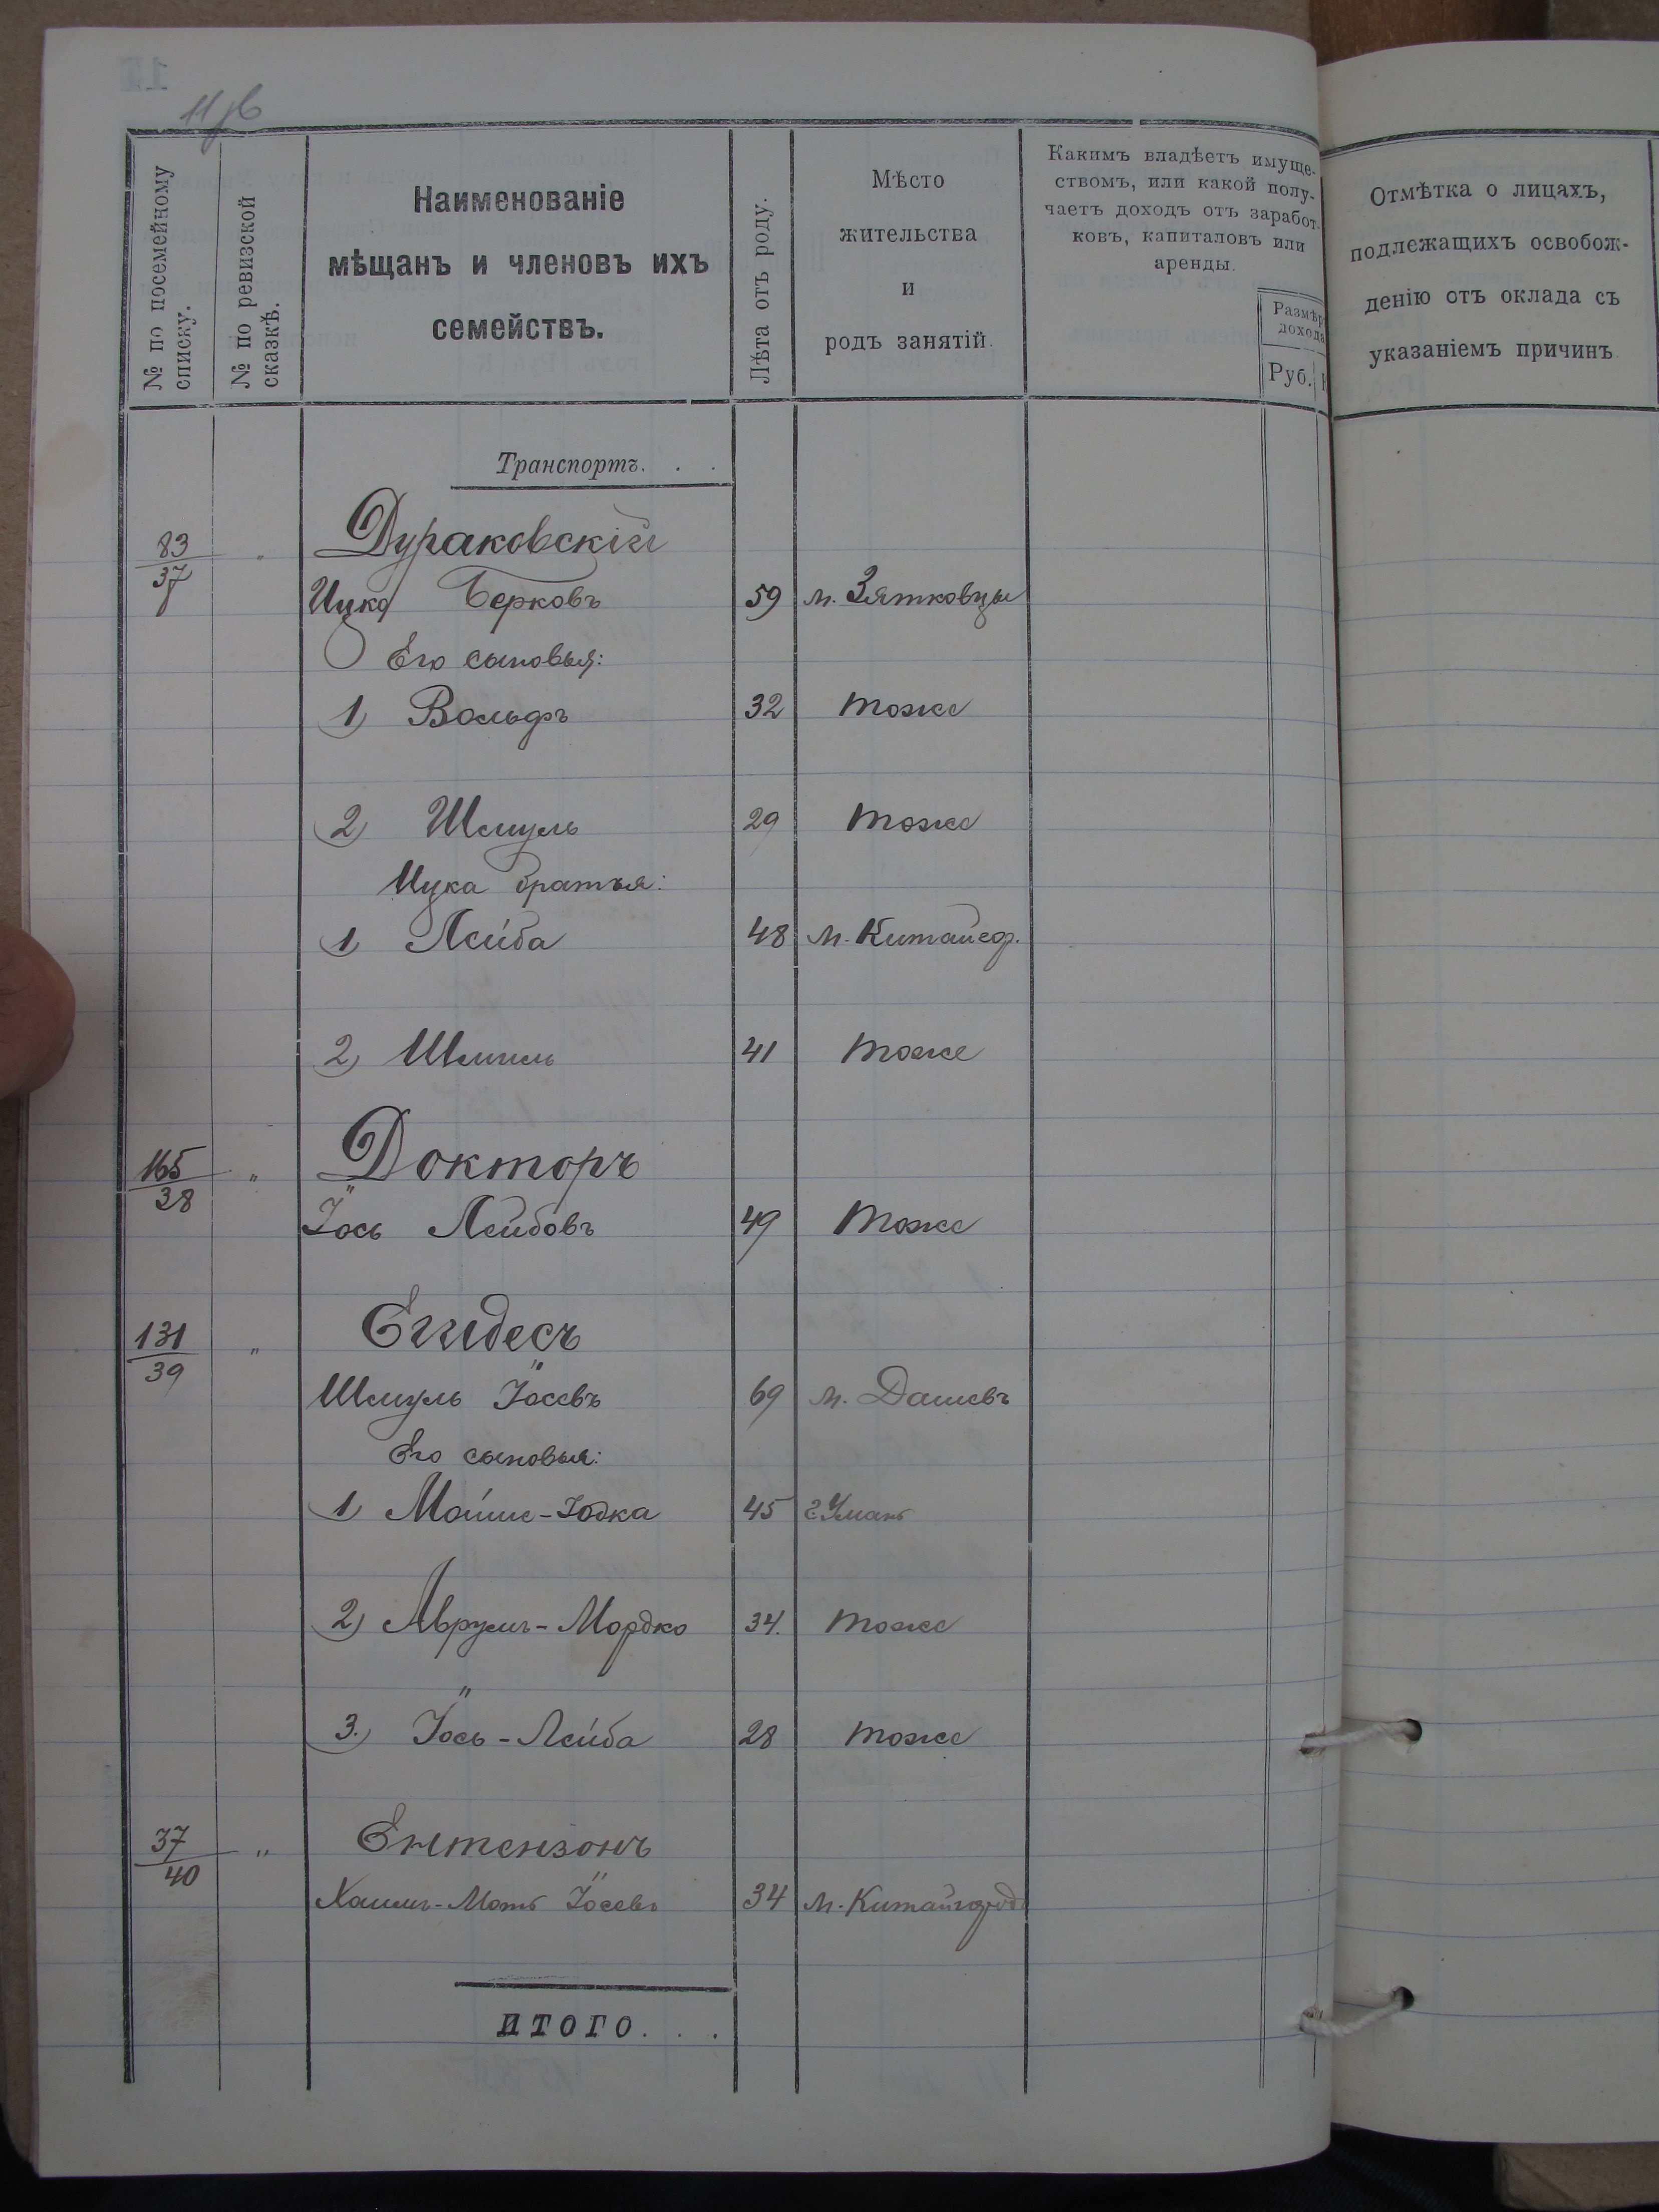 № по посемейному списку.
№ по ревизской сказкѣ.
Наименованіе
мѣщанъ и членовъ ихъ
семействъ.
Лѣта отъ роду.
Мѣсто
жительства
и
родъ занятій.
Какимъ владѣетъ имуще-
ствомъ, или какой полу-
чаетъ доходъ отъ заработ-
ковъ, капиталовъ или
аренды.
Размѣръ
дохода
Руб.
Отмѣтка о лицахъ,
подлежащихъ освобож-
денію отъ оклада съ
указаніемъ причинъ.
Транспортъ. . .
83/37 " Дураковскій
Ицко Берковъ 59 м. Зятковцы
Его сыновья:
1) Вольфъ 32 тоже
2) Шмуль 29 тоже
Ицка братья:
1) Лейба 48 м. Китайгор.
2) Шмиль 41 тоже
165/38 " Докторъ
Іось Лейбовъ 49 тоже
131/39 " Егидесъ
Шмуль Іосевъ 69 м. Дашевъ
Его сыновья:
1) Мойше-Іодка 45 г. Умань
2) Аврумъ-Мордко 34. тоже
3.) Іось-Лейба 28 тоже
37/40 " Ентензонъ
Хаимъ-Моть Іосевъ 34 м. Китайгородъ
ИТОГО. . .